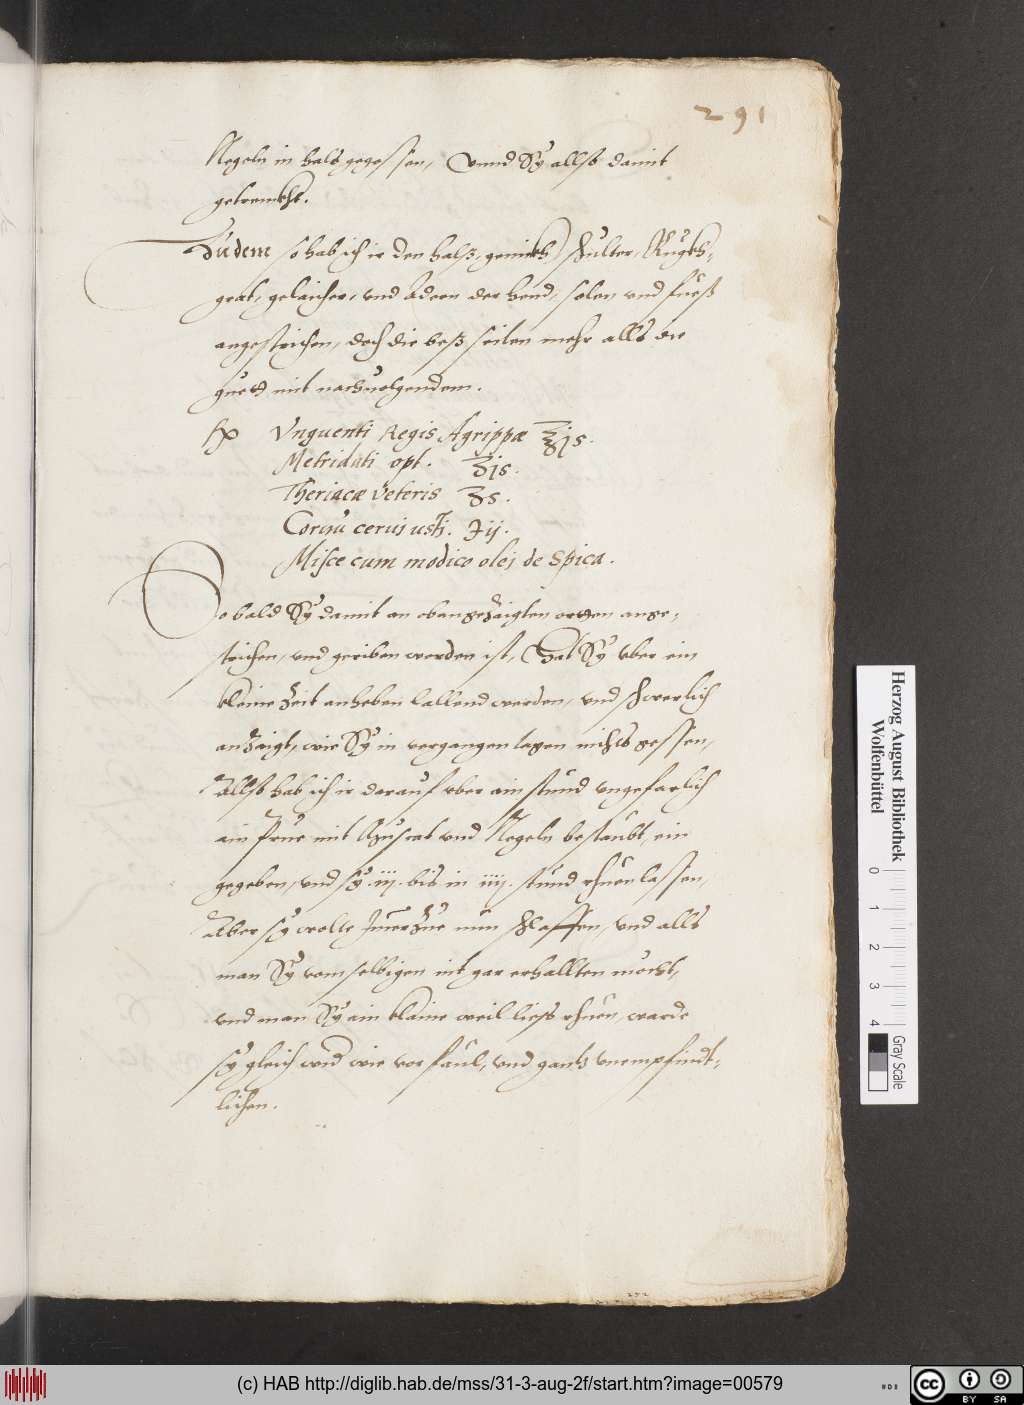 291
Negeln in hals gegossen, Vnnd Sy allso damit
getrenckht.
Zudem so hab ich ir den halß, genickh, schulter, Ruckh,
grat, gelaicher, vnd Adern der hend, solen vnd fueß
angestrichen, doch die beß seiten mehr alls die
guet mit nachuolgendem.
Rp Vnguenti Regis Agrippæ ℥js.
Metridati opt. ʒjs.
Theriacæ veteris ʒs.
Cornu cerui usti. ℈ij.
Misce cum modico olei de Spica.
So bald Sy damit an obangezaigten orten ange,
strichen, vnd geriben worden ist, Hat Sy vber ein
kleine Zeit anheben lallend werden, vnd schwerlich
anzaigt, wie Sy in vergangen tagen nichts gessen,
Allso hab ich ir darauf vber ain stund vngefarlich
ain mit Muscat vnd Negeln bestaubt, ein
gegeben, vnd sy .iij. bis in iiij. stund rhuen lassen,
Aber sy wolte Jmerzue nun schlaffen, vnd alls
man Sy vom selbigen nit gar erhallten mocht,
vnd man Sy ain klaine weil liess rhuen, warde
sy gleich wid wie vor faul, vnd gantz vnempfindt,
lichen.
Herzog August Bibliothek
Wolfenbüttel
0 1 2 3 4
Gray Scale
(c) HAB http://diglib.hab.de/mss/31-3-aug-2f/start.htm?image=00579
cc BY SA